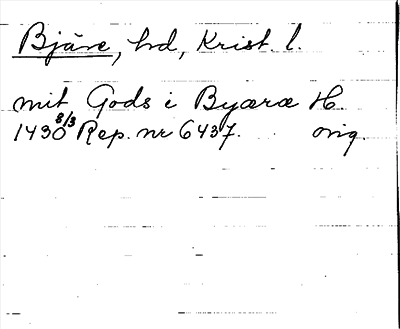 Bjäre, hd, Krist. l.
mit Gods i Byæræ H.
1430 8/3 Rep. nr 6437. orig.